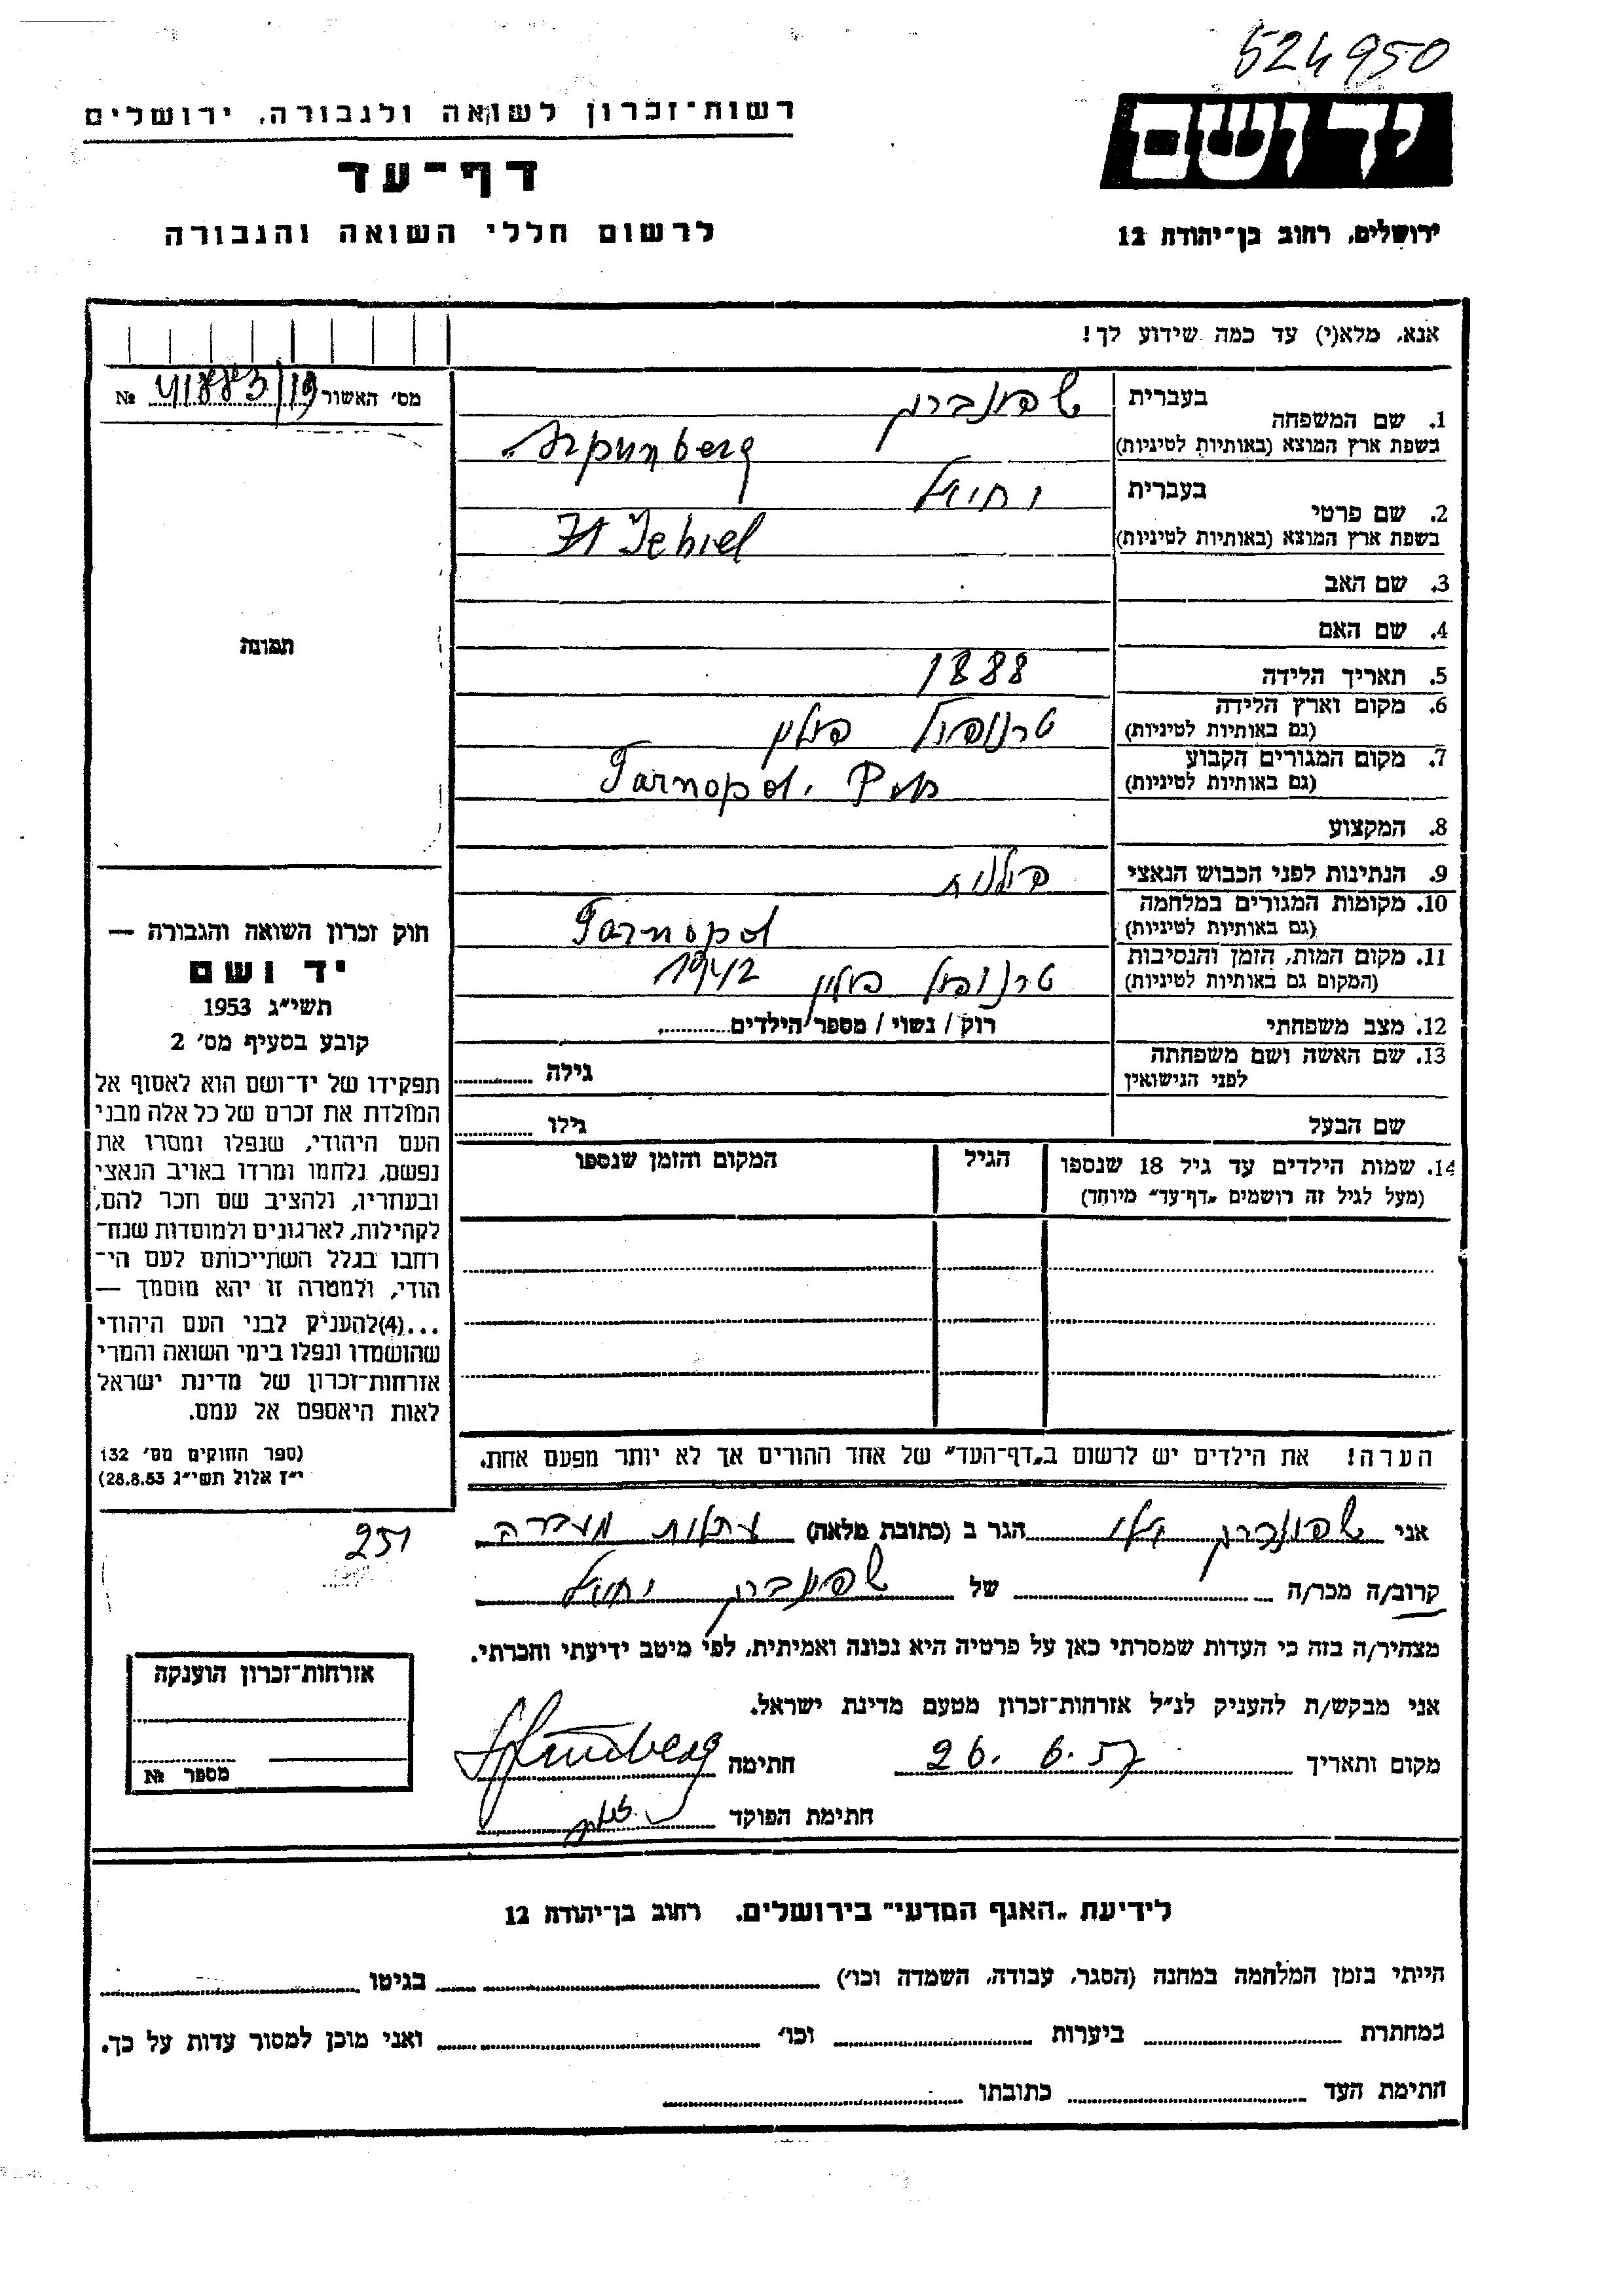 524950
רשות־זכרון לשואה ולגבורה, ירושלים
יד ושם
דף־עד
ירושלים, רחוב בן־יהודה 12
לרשום חללי השואה והגבורה
אנא, מלא(י) עד כמה שידוע לך!
מס׳ האשור №
1. שם המשפחה
בעברית שפונברג
בשפת ארץ המוצא (באותיות לטיניות)
2. שם פרטי
בעברית יחיאל
בשפת ארץ המוצא (באותיות לטיניות) Jehiel
3. שם האב
4. שם האם
תמונה
5. תאריך הלידה 1888
6. מקום וארץ הלידה (גם באותיות לטיניות) טרנופול פולין
7. מקום המגורים הקבוע (גם באותיות לטיניות) Tarnopol.
8. המקצוע
9. הנתינות לפני הכבוש הנאצי פולנית
10. מקומות המגורים במלחמה (גם באותיות לטיניות) Tarnopol
11. מקום המות, הזמן והנסיבות (המקום גם באותיות לטיניות) טרנופול פולין 1942
12. מצב משפחתי רוק / נשוי / מספר הילדים
13. שם האשה ושם משפחתה לפני הנישואין גילה
שם הבעל גילו
14. שמות הילדים עד גיל 18 שנספו הגיל המקום והזמן שנספו
(מעל לגיל זה רושמים „דף־עד״ מיוחד)
חוק זכרון השואה והגבורה —
יד ושם
תשי״ג 1953
קובע בסעיף מס׳ 2
תפקידו של יד־ושם הוא לאסוף אל
המולדת את זכרם של כל אלה מבני
העם היהודי, שנפלו ומסרו את
נפשם, נלחמו ומרדו באויב הנאצי
ובעוזריו, ולהציב שם וזכר להם,
לקהילות, לארגונים ולמוסדות שנח־
רחבו בגלל השתייכותם לעם הי־
הודי, ולמטרה זו יהא מוסמך —
...(4)להעניק לבני העם היהודי
שהושמדו ונפלו בימי השואה והמרי
אזרחות־זכרון של מדינת ישראל
לאות היאספם אל עמם.
(ספר החוקים מס׳ 132
י״ז אלול תשי״ג 28.8.53)
הערה! את הילדים יש לרשום ב„דף־העד״ של אחד ההורים אך לא יותר מפעם אחת.
251
אני שפונברג הגר ב (כתובת מלאה) עתלית מעברה
קרוב/ה מכר/ה של שפונברג יחיאל
מצהיר/ה בזה כי העדות שמסרתי כאן על פרטיה היא נכונה ואמיתית, לפי מיטב ידיעתי והכרתי.
אני מבקש/ת להעניק לנ״ל אזרחות־זכרון מטעם מדינת ישראל.
מקום ותאריך 26. 6. 57 חתימה
חתימת הפוקד
אזרחות־זכרון הוענקה
מספר №
לידיעת „האגף המדעי״ בירושלים, רחוב בן־יהודה 12
הייתי בזמן המלחמה במחנה (הסגר, עבודה, השמדה וכו׳) בגיטו
במחתרת ביערות וכו׳ ואני מוכן למסור עדות על כך.
חתימת העד כתובתו